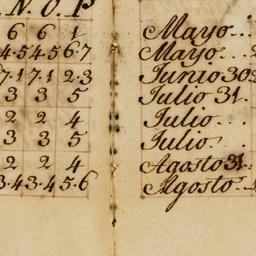 . N. O. P
6 6 1
4.5 4.5 6.7
7.1 7.1 2.3
3 3 5
2 2 4
3 3 5
2 2 4
3.4 3.4 5.6
Mayo...
Mayo...
Junio 30
Julio 31.
Julio...
Julio...
Agosto 31.
Agosto...